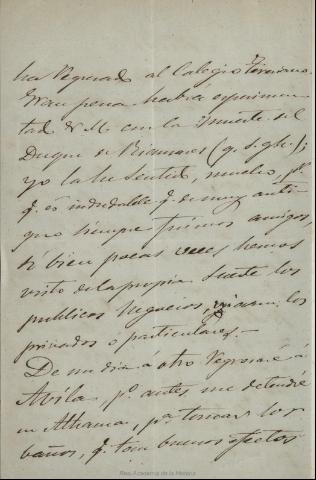 ha regresado al Colegio Teresiano.
Gran pena habrá experimen-
tado V. M. con la muerte del
Duque de Rianzares (q. s. g. h.);
yo la he sentido, mucho, p.
q. es indudable q. de muy anti-
guo siempre fuimos amigos,
si bien pocas veces hemos
visto de la propia suerte los
publicos negocios, los
privados o particulares.—
De un dia á otro regresaré á
Avila, p.º antes me detendré
en Alhama, p.ª tomar los
baños, q. tan buenos efectos
Real Academia de la Historia